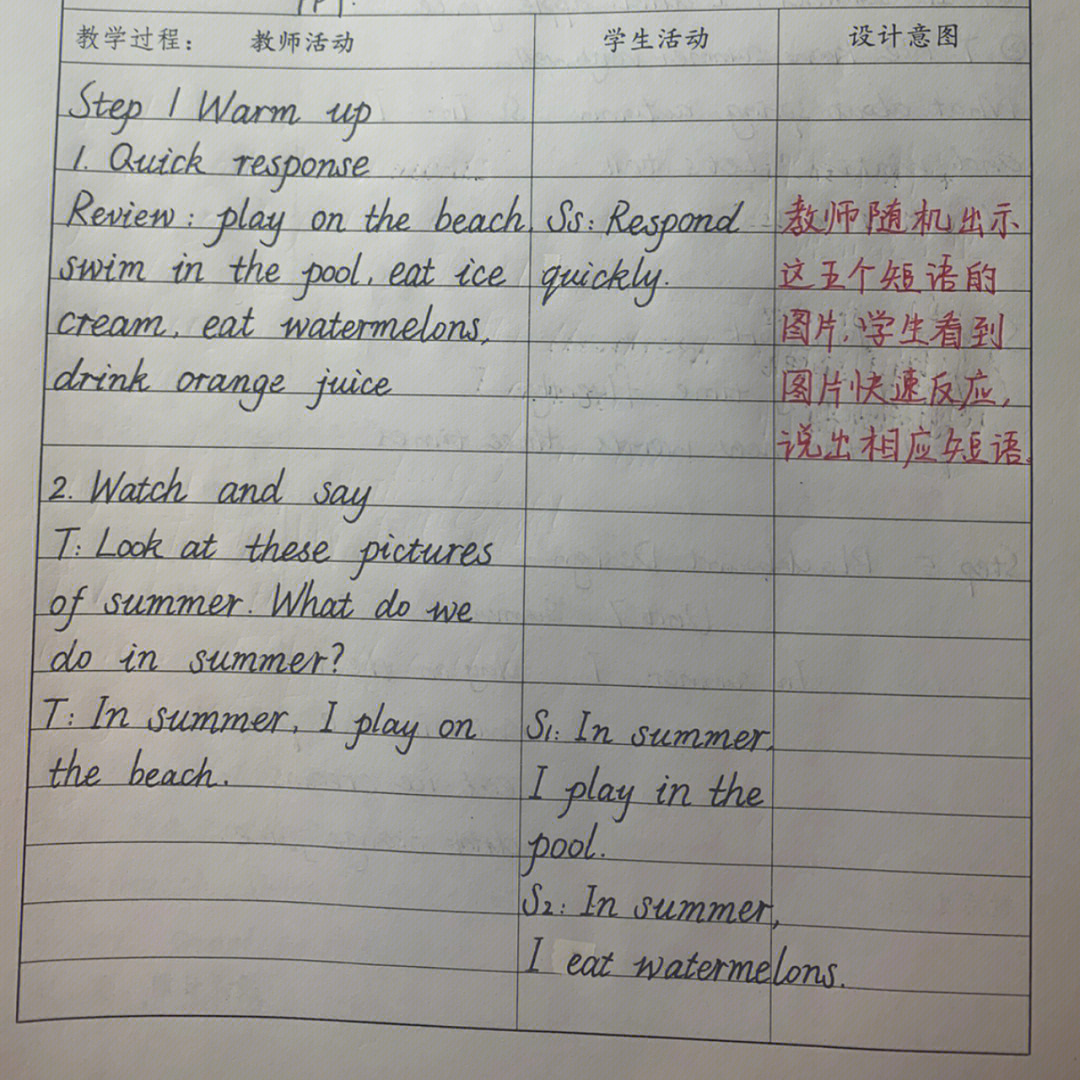 教学过程： 教师活动 学生活动 设计意图
Step 1 Warm up
1. Quick response
Review: play on the beach,
swim in the pool, eat ice
cream, eat watermelons,
drink orange juice
2. Watch and say
T: Look at these pictures
of summer. What do we
do in summer?
T: In summer, I play on
the beach.
Ss: Respond
quickly.
S1: In summer,
I play in the
pool.
S2: In summer,
I eat watermelons.
教师随机出示
这五个短语的
图片，学生看到
图片快速反应，
说出相应短语。